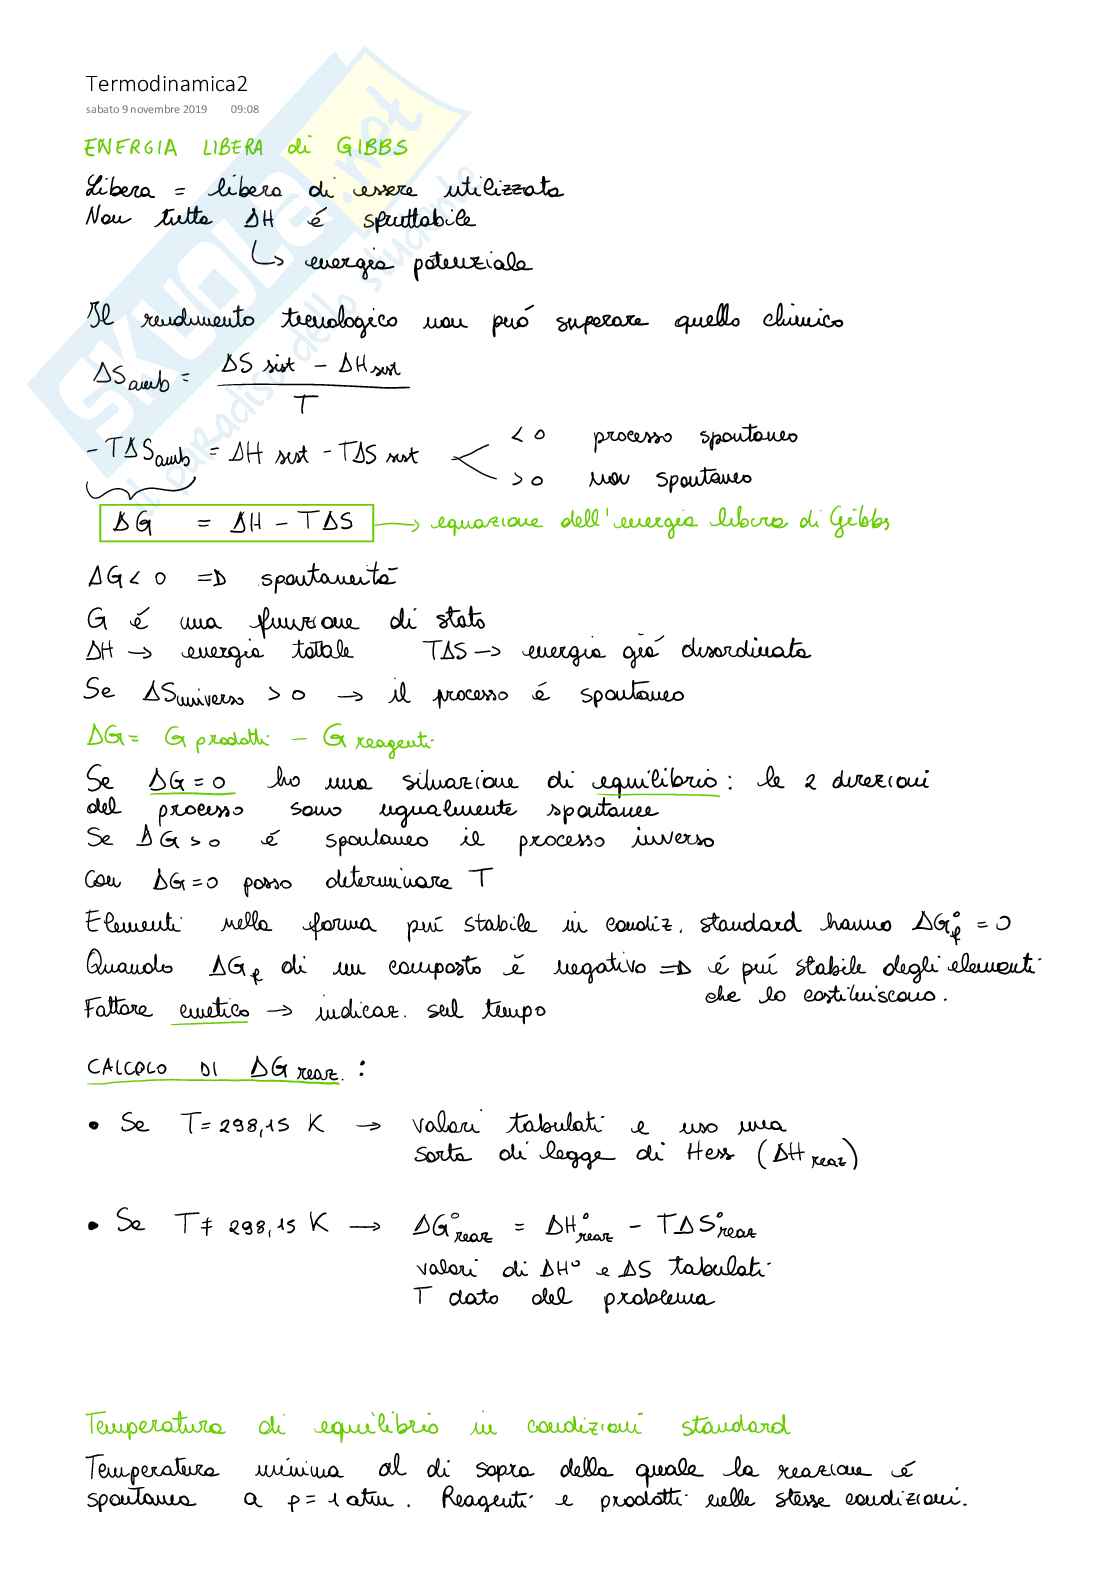 Termodinamica2
sabato 9 novembre 2019 09:08
ENERGIA LIBERA di GIBBS
Libera = libera di essere utilizzata
Non tutta ΔH é sfruttabile
↳ energia potenziale
Il rendimento tecnologico non può superare quello chimico
ΔS amb = (ΔS sist - ΔH sist) / T
- TΔS amb = ΔH sist - TΔS sist
< 0 processo spontaneo
> 0 non spontaneo
ΔG = ΔH - TΔS → equazione dell'energia libera di Gibbs
ΔG < 0 => spontaneità
G é una funzione di stato
ΔH → energia totale TΔS → energia già disordinata
Se ΔS universo > 0 → il processo é spontaneo
ΔG = G prodotti - G reagenti
Se ΔG = 0 ho una situazione di equilibrio: le 2 direzioni
del processo sono ugualmente spontanee
Se ΔG > 0 é spontaneo il processo inverso
Con ΔG = 0 posso determinare T
Elementi nella forma più stabile in condiz. standard hanno ΔG°f = 0
Quando ΔGf di un composto è negativo => é più stabile degli elementi
che lo costituiscono.
Fattore cinetico → indicaz. sul tempo
CALCOLO DI ΔG reaz. :
• Se T = 298,15 K → valori tabulati e uso una
sorta di legge di Hess (ΔH reaz)
• Se T ≠ 298,15 K → ΔG° reaz = ΔH° reaz - TΔS° reaz
valori di ΔH° e ΔS tabulati
T dato del problema
Temperatura di equilibrio in condizioni standard
Temperatura minima al di sopra della quale la reazione é
spontanea a p = 1 atm. Reagenti e prodotti nelle stesse condizioni.
SKUOLA.net
il paradiso dello studente